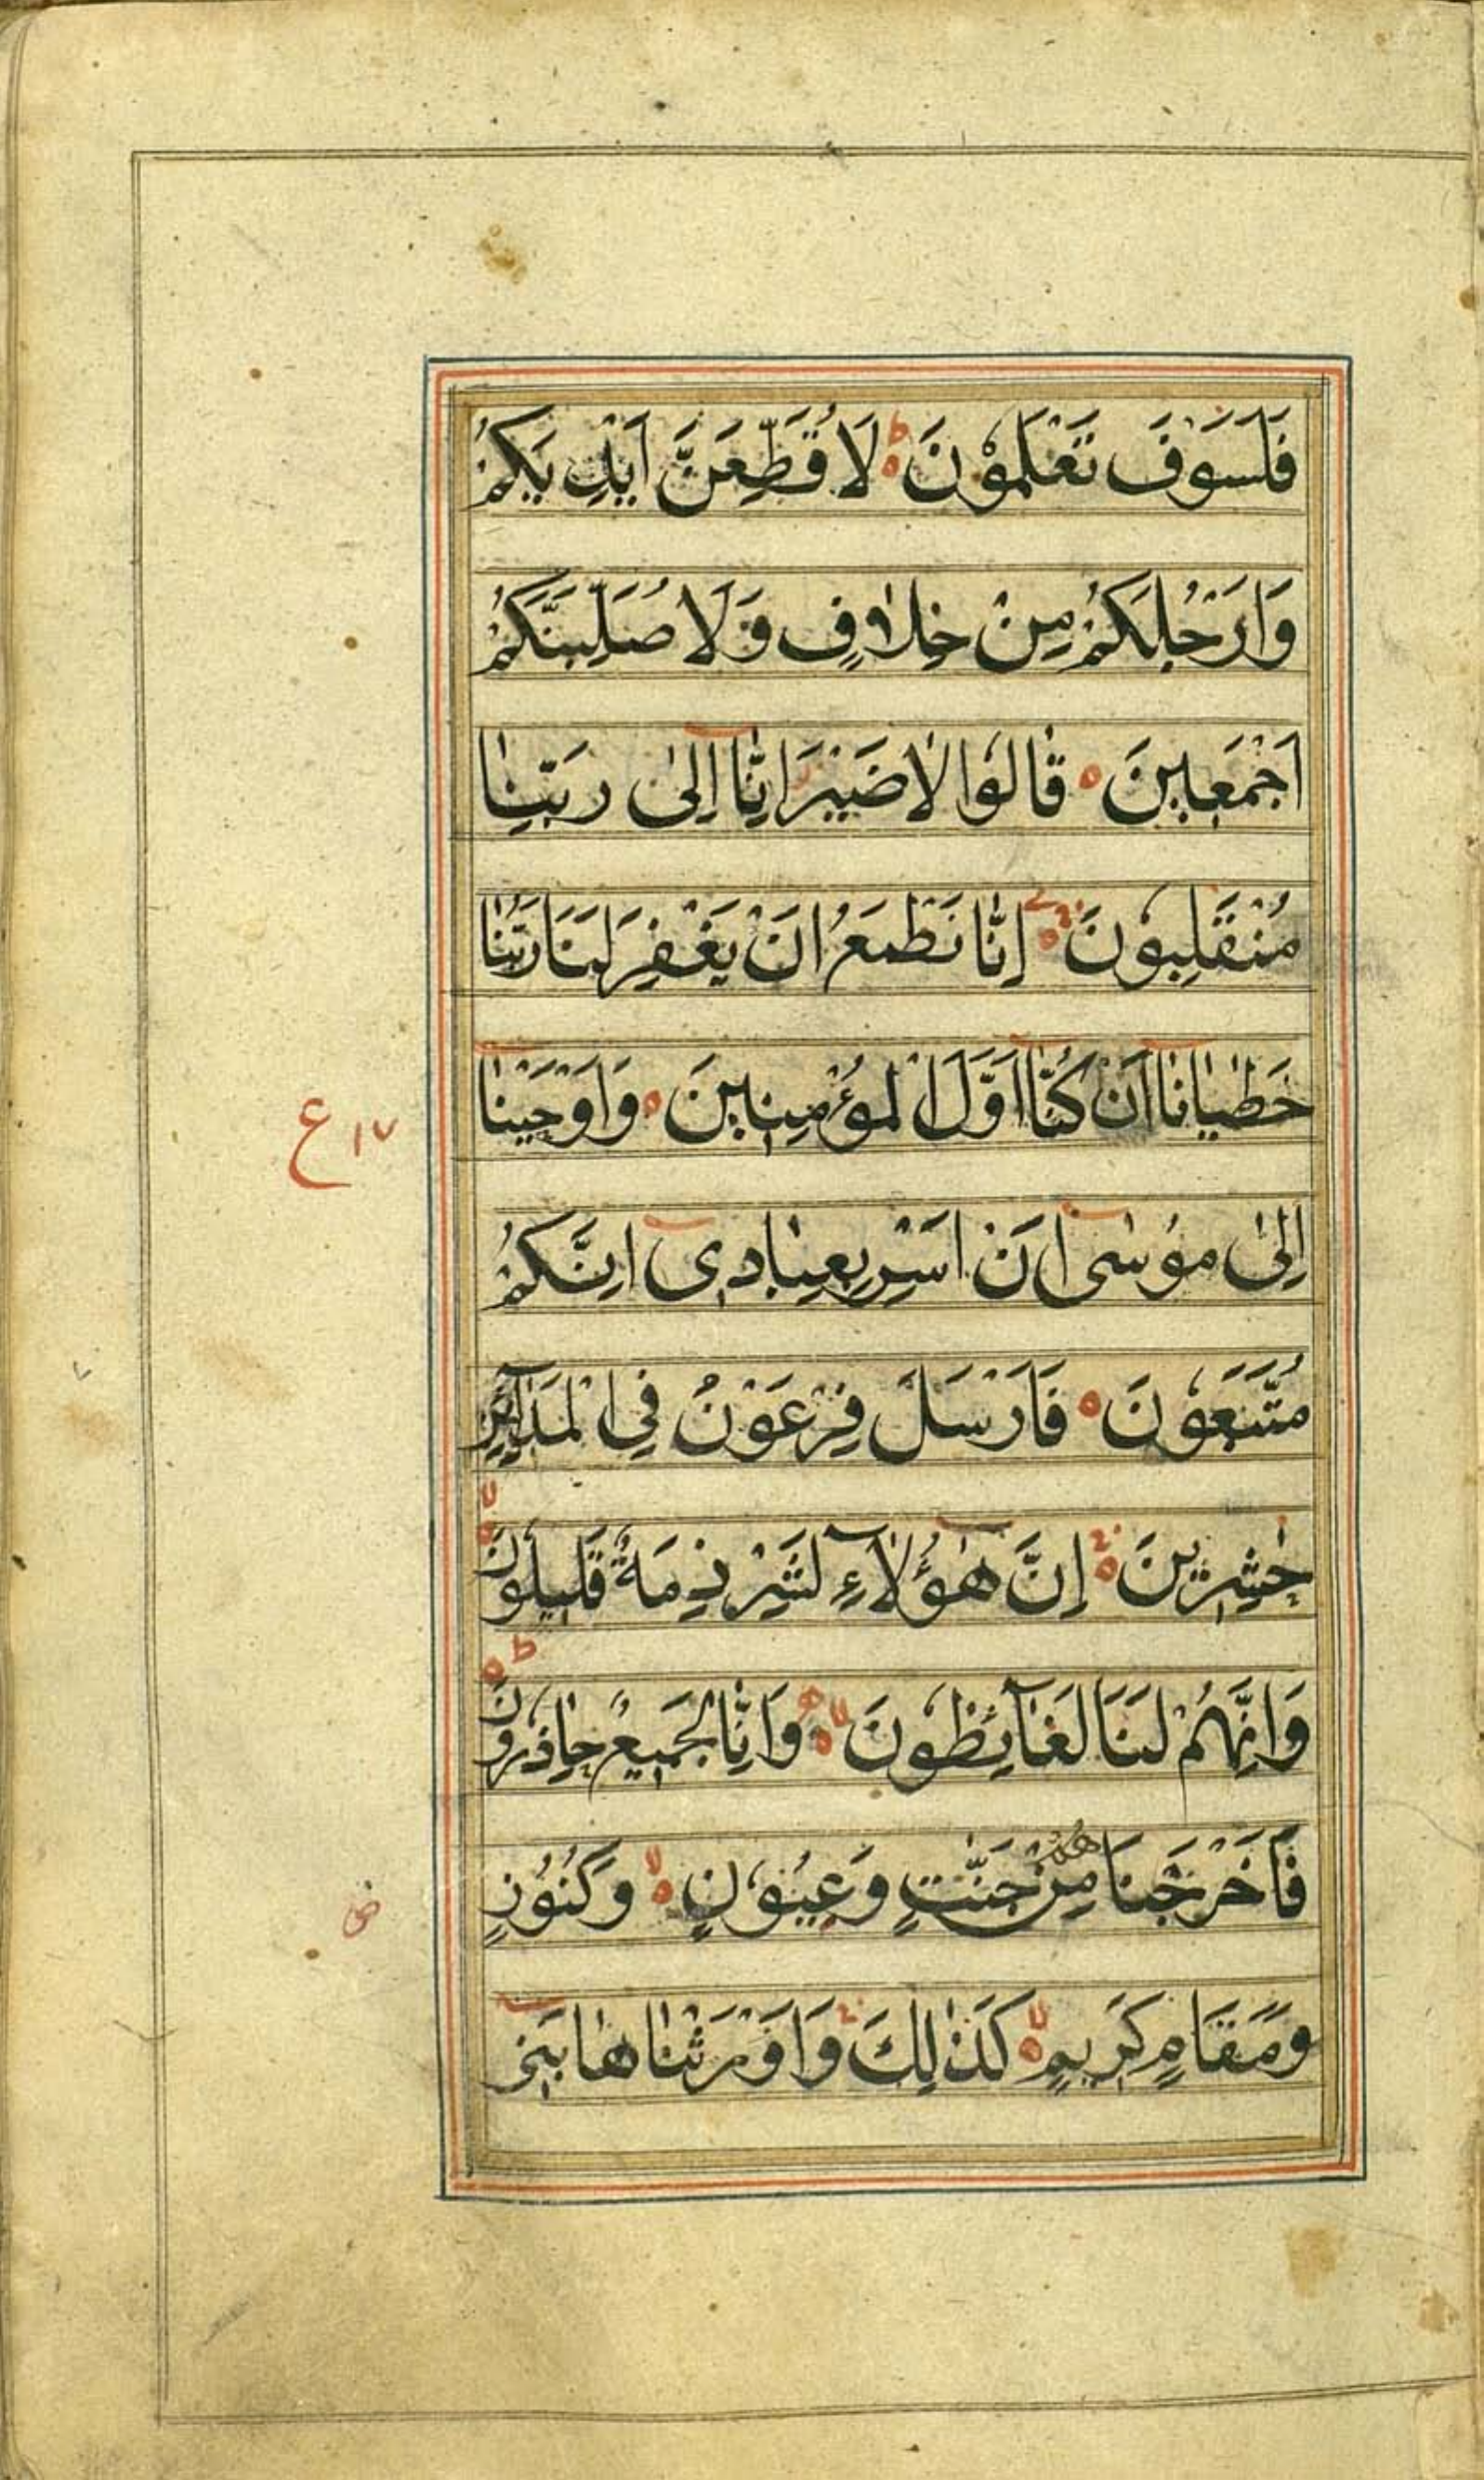 فَلَسَوْفَ تَعْلَمُوْنَ ؕ لَاُقَطِّعَنَّ اَيْدِيَكُمْ
وَاَرْجُلَكُمْ مِنْ خِلَافٍ وَلَاُصَلِّبَنَّكُمْ
اَجْمَعِيْنَ ٥ قَالُوْا لَا ضَيْرَ اِنَّآ اِلٰى رَبِّنَا
مُنْقَلِبُوْنَ ٥ اِنَّا نَطْمَعُ اَنْ يَغْفِرَ لَنَا رَبُّنَا
خَطٰيٰانَآ اَنْ كُنَّآ اَوَّلَ الْمُؤْمِنِيْنَ ٥ وَاَوْحَيْنَآ
اِلٰى مُوْسٰٓى اَنْ اَسْرِ بِعِبَادِىٓ اِنَّكُمْ
مُتَّبَعُوْنَ ٥ فَاَرْسَلَ فِرْعَوْنُ فِى الْمَدَآئِنِ
حٰشِرِيْنَ ٥ اِنَّ هٰٓؤُلَآءِ لَشِرْذِمَةٌ قَلِيْلُوْنَ ٥ لا
وَاِنَّهُمْ لَنَا لَغَآئِظُوْنَ ٥ لا وَاِنَّا لَجَمِيْعٌ حَاذِرُوْنَ ٥ ط
فَاَخْرَجْنَاهُمْ مِنْ جَنّٰتٍ وَعُيُوْنٍ ٥ لا وَكُنُوْزٍ
وَمَقَامٍ كَرِيْمٍ ٥ لا كَذٰلِكَ وَاَوْرَثْنَاهَا بَنِىٓ
ع ١٧